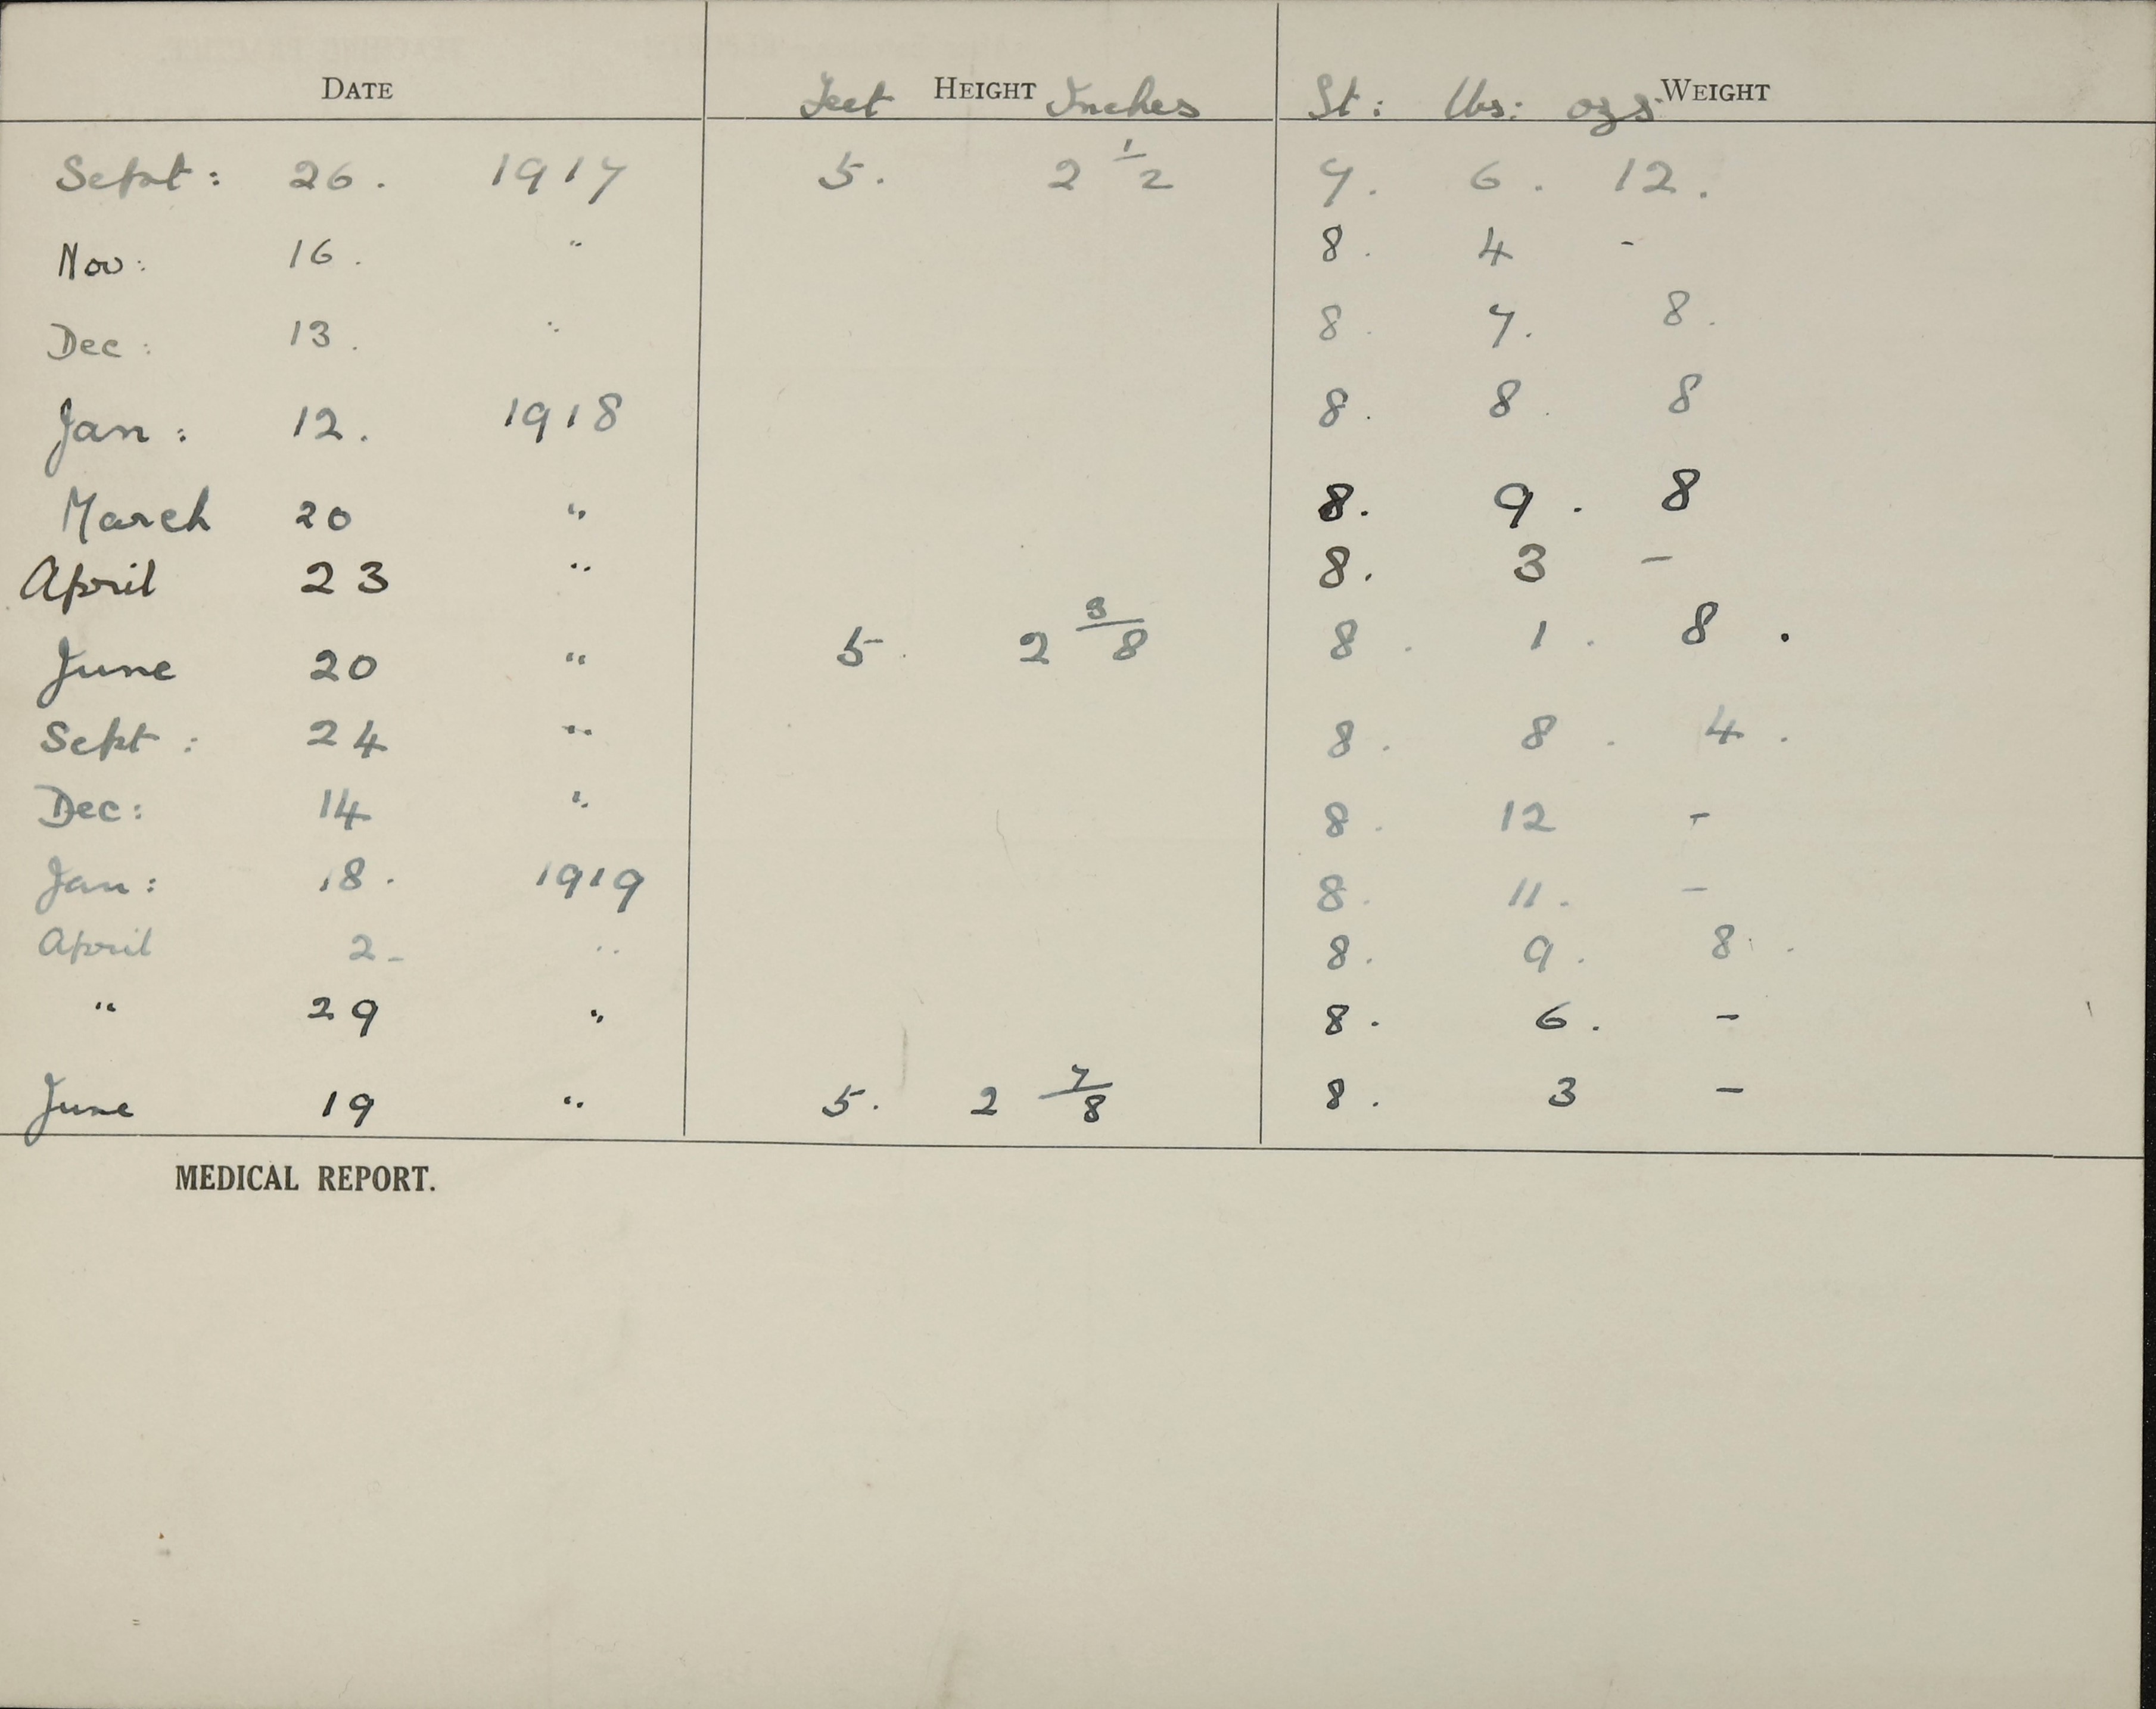 DATE HEIGHT WEIGHT
Feet Inches St: lbs: ozs.
Sept: 26. 1917 5. 2 1/2 7. 6. 12.
Nov: 16. " 8. 4 -
Dec: 13. " 8. 7. 8.
Jan: 12. 1918 8. 8. 8
March 20 " 8. 9. 8
April 23 " 8. 3 -
June 20 " 5. 2 3/8 8. 1. 8.
Sept: 24 " 8. 8. 4.
Dec: 14 " 8. 12 -
Jan: 18. 1919 8. 11. -
April 2- " 8. 9. 8.
" 29 " 8. 6. -
June 19 " 5. 2 7/8 8. 3 -
MEDICAL REPORT.